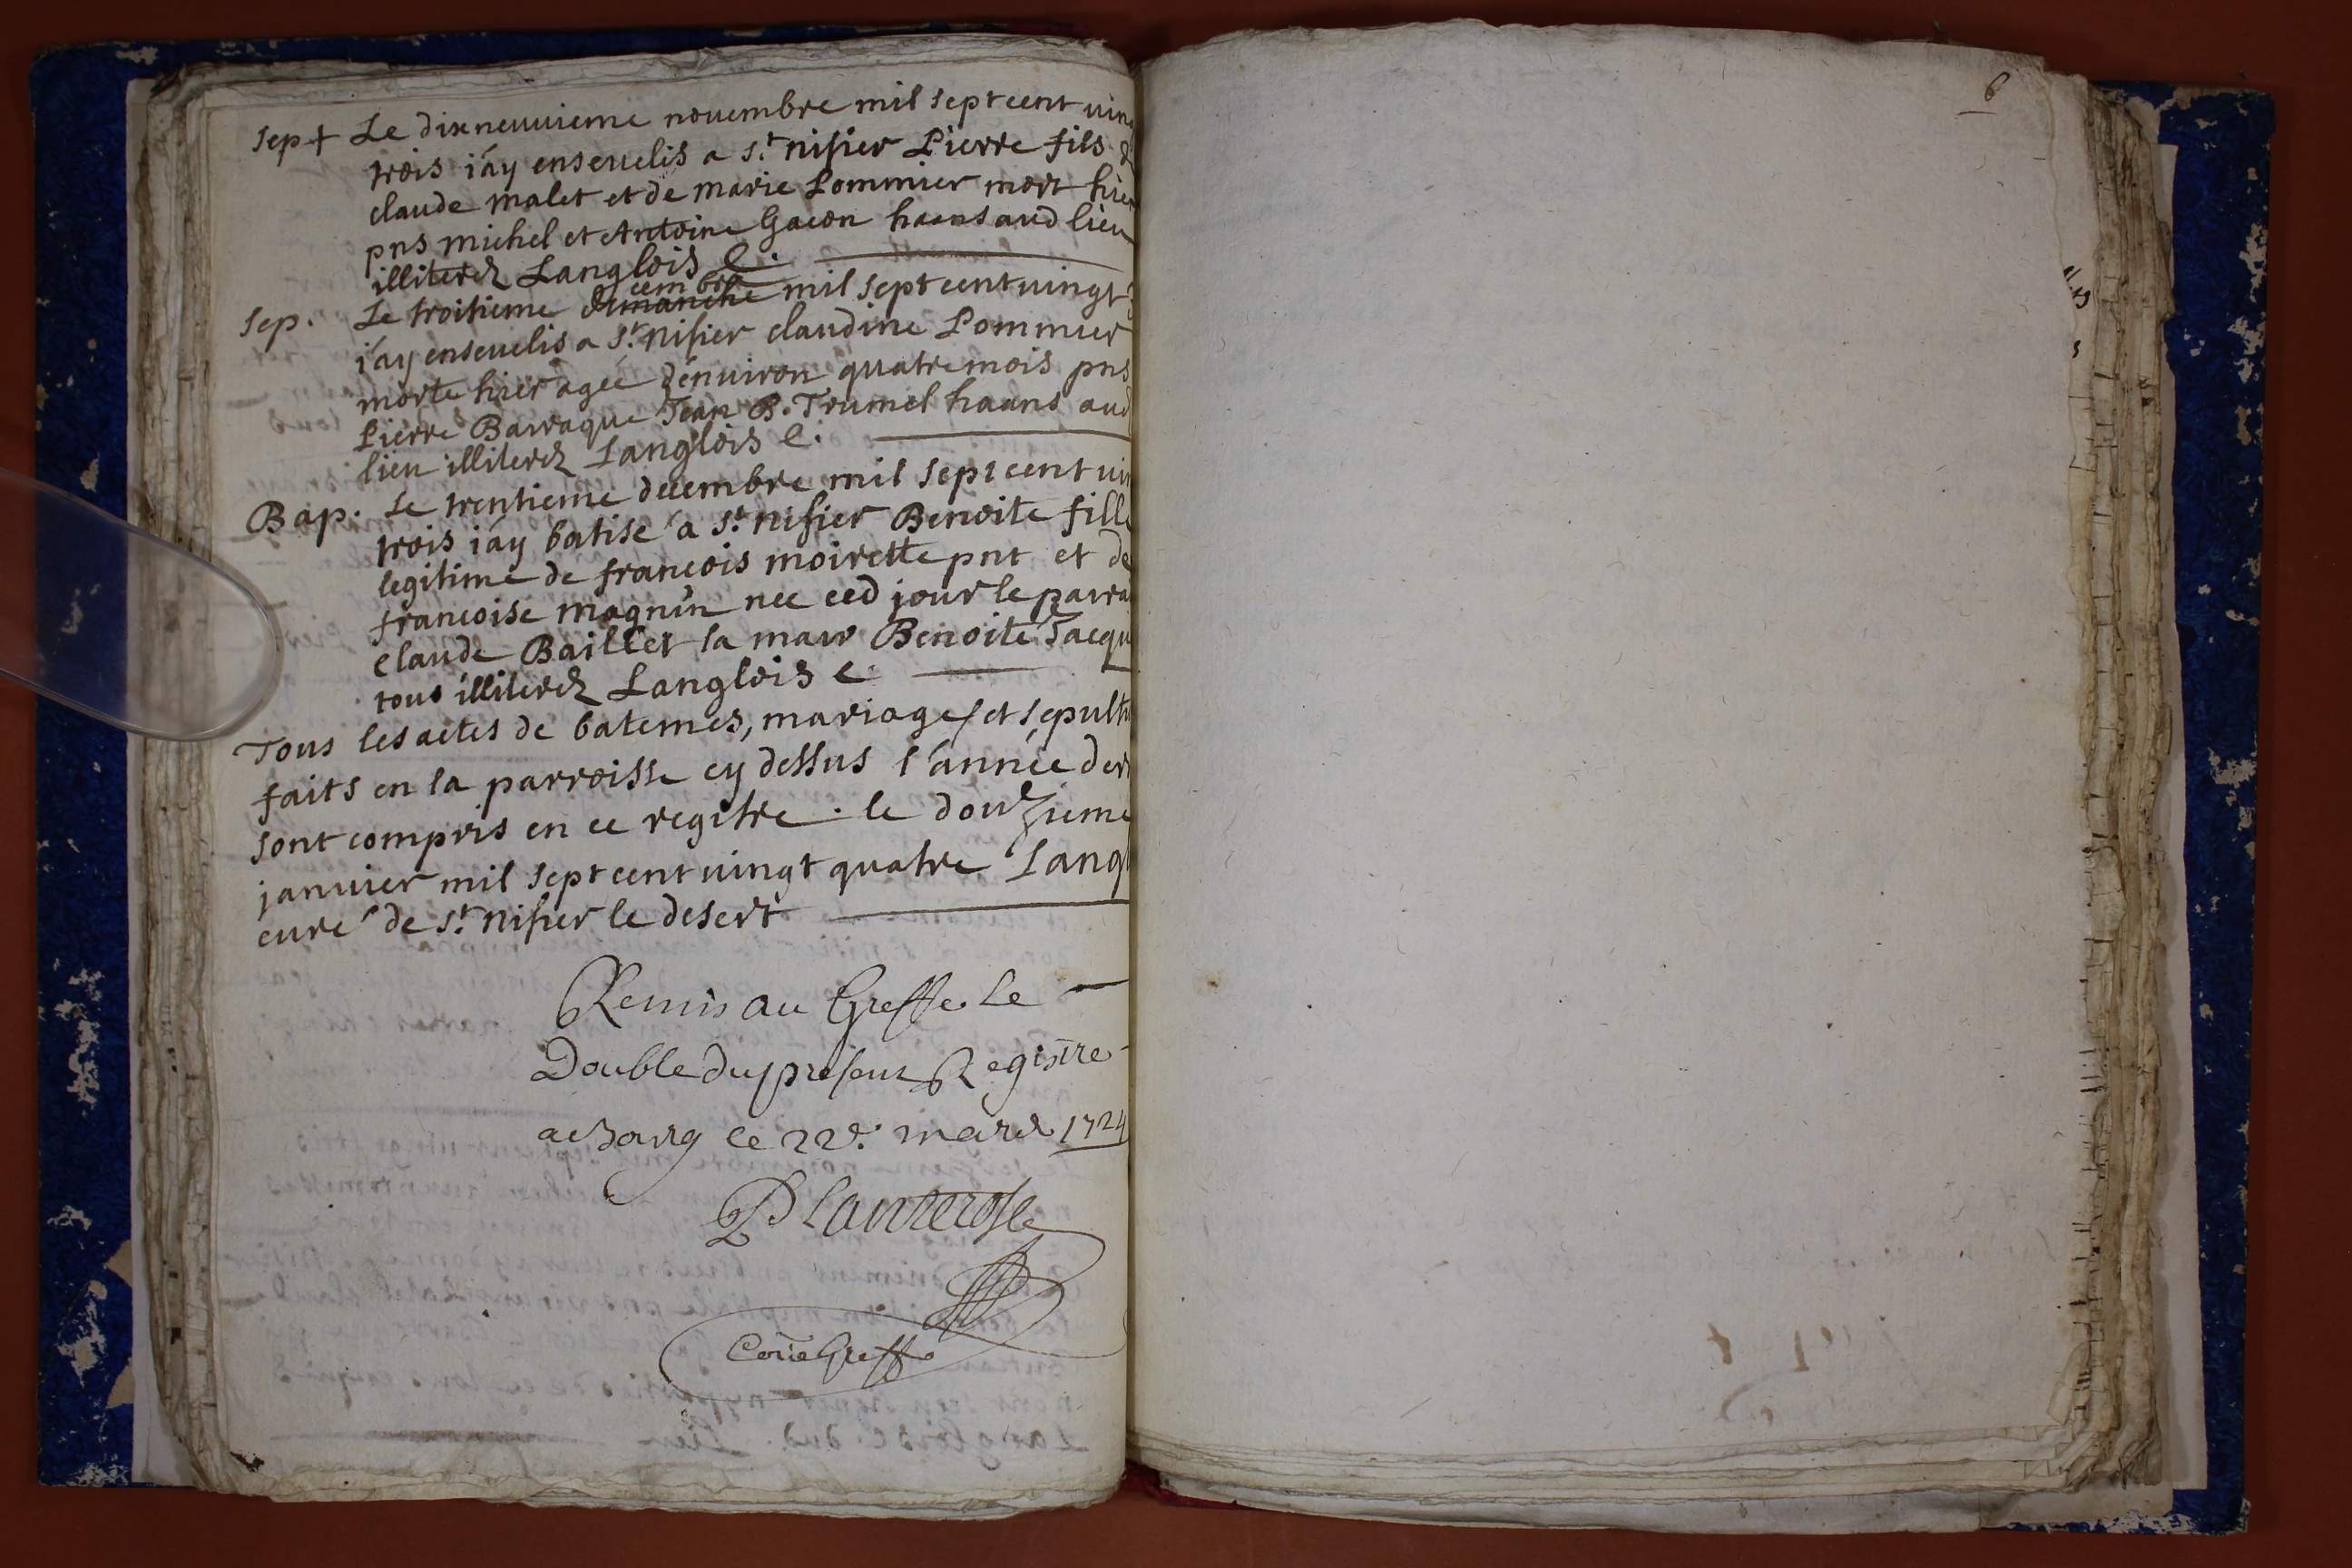 sep + Le dixneuuieme nouembre mil sept cent ving
trois i'ay enseuelis a s.t nisier Pierre fils d
claude malet et de marie Pommier mort hier
pns michel et Antoine Gacon haans aud lieu
illiterez Langlois C.
cembre
sep. Le troisieme dimanche mil sept cent uingt 3
i'ay enseuelis a s.t nisier claudine Pommier
morte hier agée d'enuiron quatre mois pns
Pierre Barraque Jean B. Trumel haans aud
lieu illiterez Langlois C.
Bap. Le trentieme decembre mil sept cent uin
trois i'ay batisé a s.t nisier Benoite fille
legitime de francois moirette pnt et de
francoise magnin nee ced jour le parra
claude Baillet la marr Benoite Jacqu
tous illiterez Langlois C
Tous les actes de batemes, mariages et sepultu
faits en la parroisse cy dessus l'année der
sont compris en ce regitre. le douzieme
janvier mil sept cent uingt quatre Langl
curé de s.t nisier le desert
Remis au Greffe le
Double du present Registre
a Bourg le 22e. mars 1724
Comis Greff
6